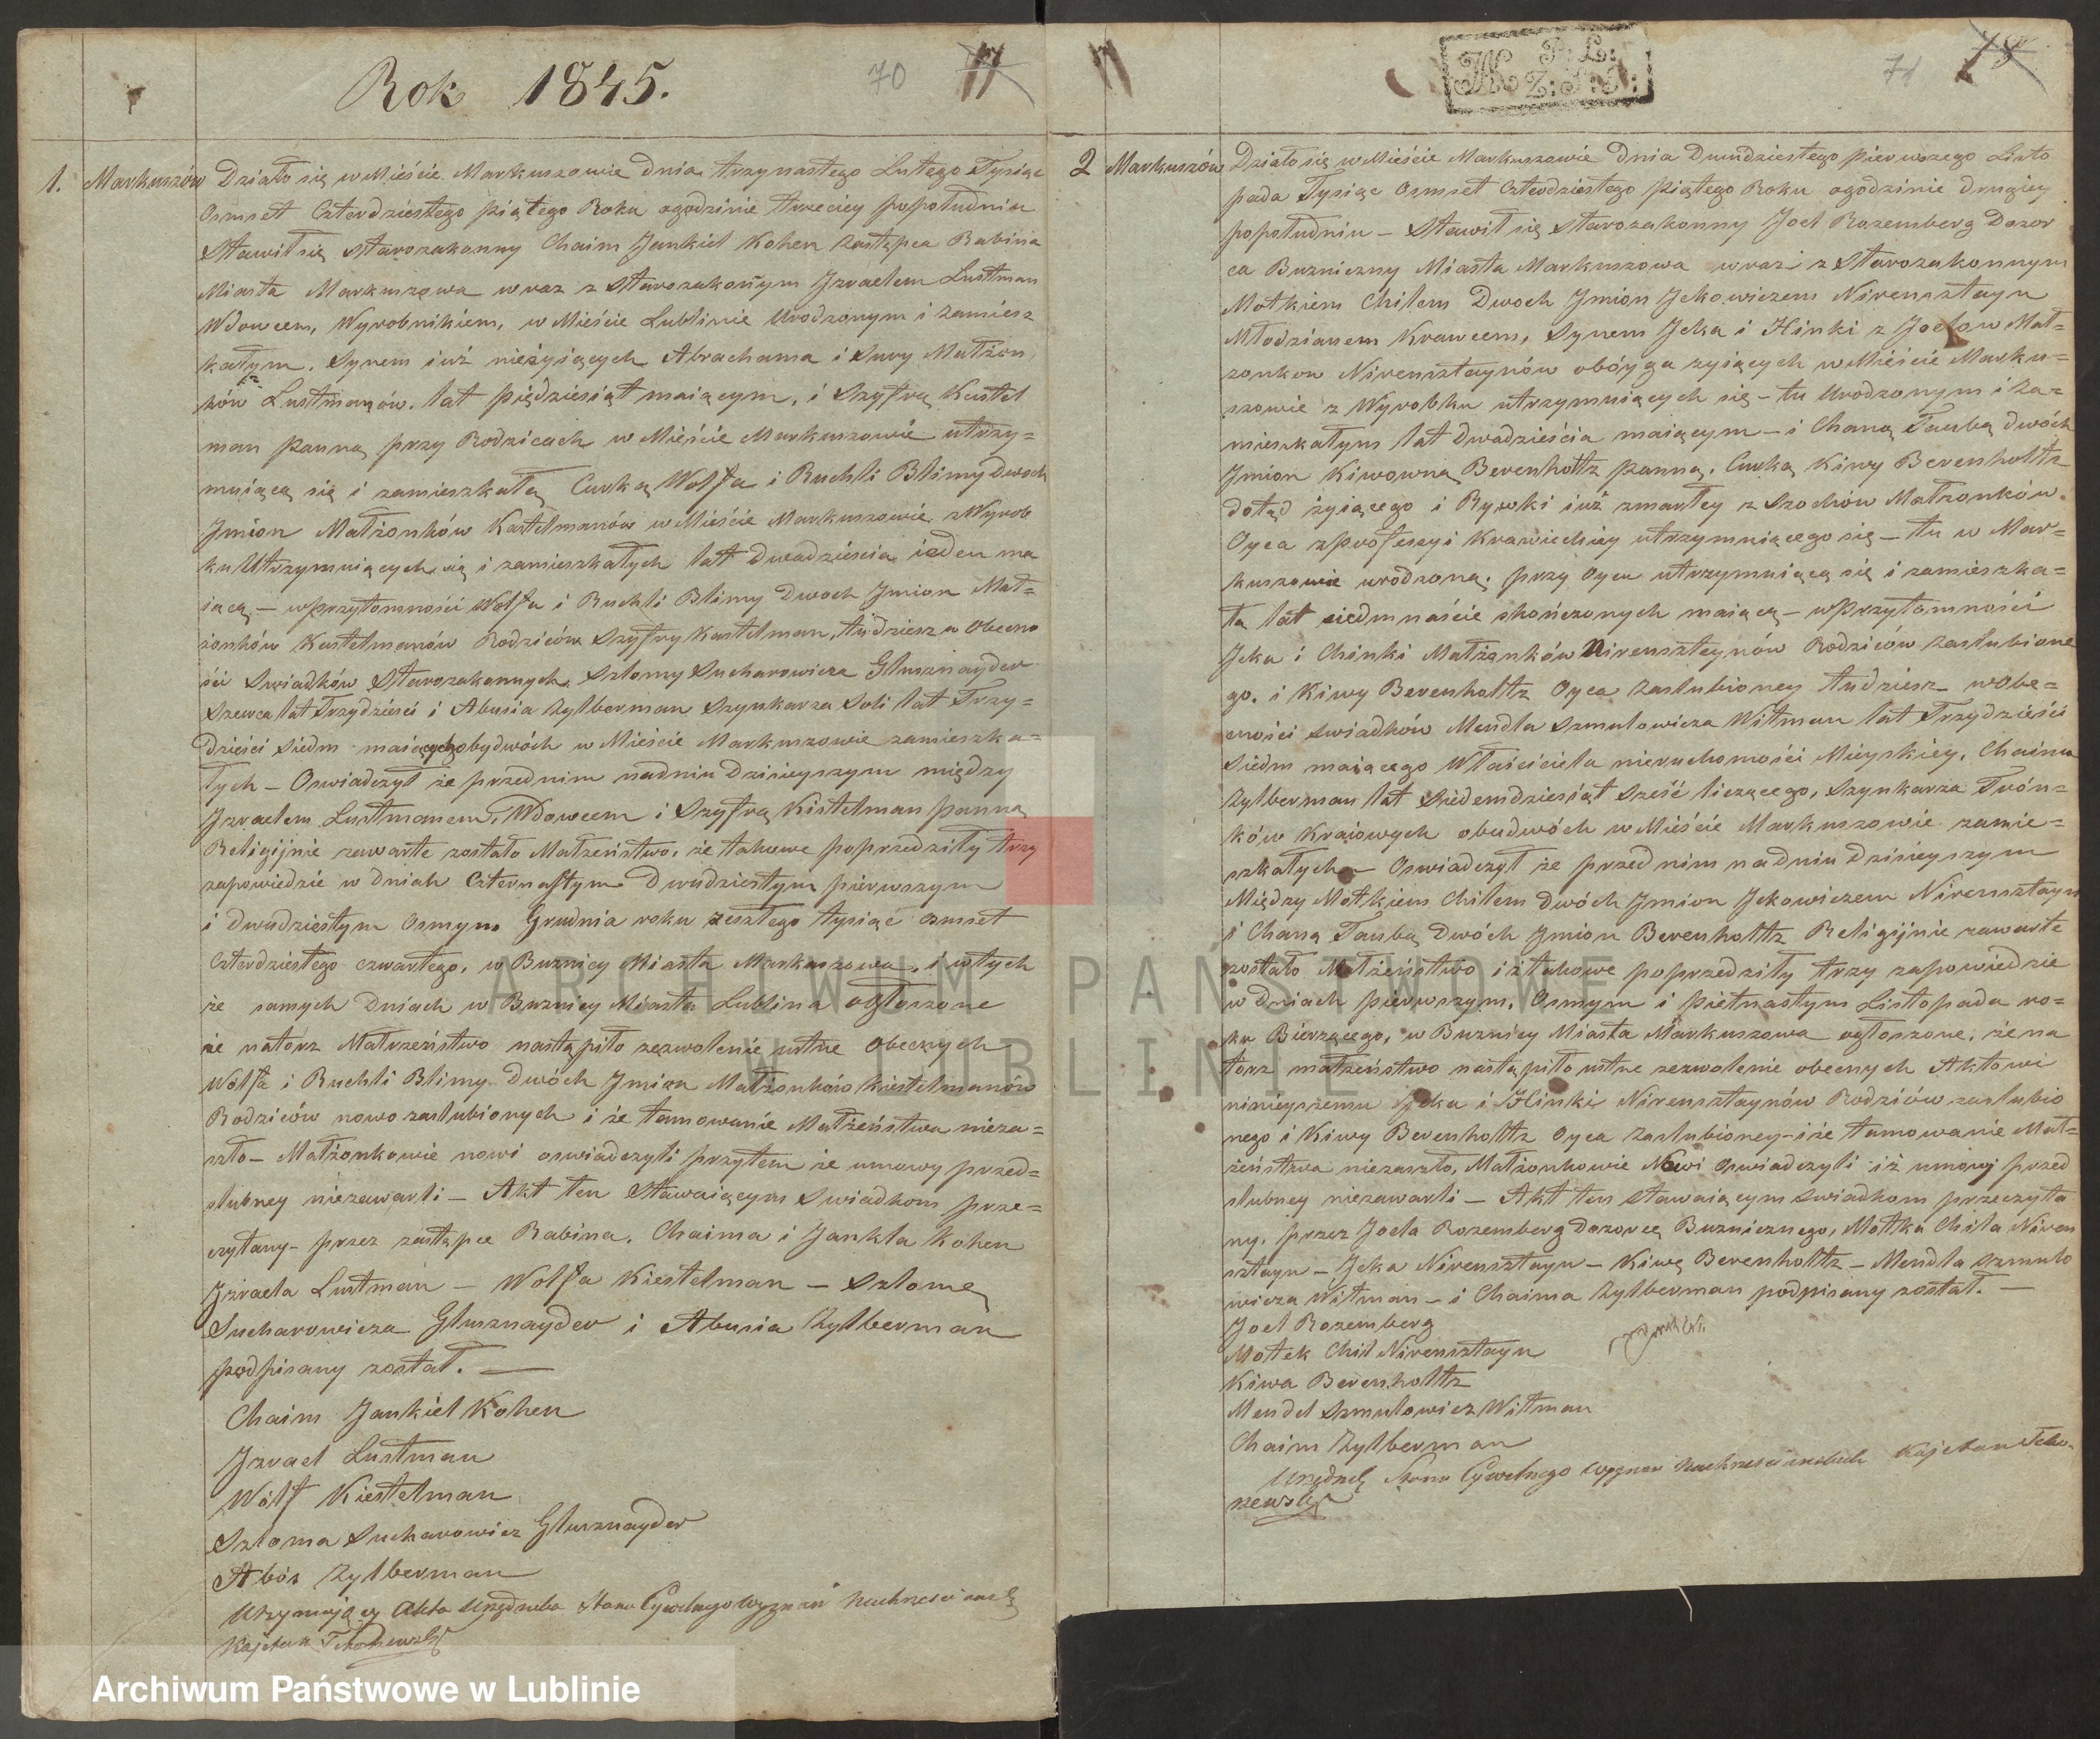 Rok 1845.
70
1. Markuszów
Działo się w Mieście Markuszowie dnia trzynastego Lutego Tysiąc
Osmset Czterdziestego piątego Roku ogodzinie trzeciey popołudniu
Stawił się starozakonny Chaim Jankiel Kohen Zastępca Rabina
Miasta Markuszowa wraz z Starozakonym Jzraelem Lustman
Wdowcem, Wyrobnikiem, w Mieście Lublinie Urodzonym i zamiesz
kałym, Synem iuż nieżyiących Abrachama i Sury Małżon
ków Lustmanów, lat piędziesiąt maiącym, i Szyfrą Kestel
man panną przy Rodzicach w Mieście Markuszowie utrzy=
muiącą się i zamieszkałą Curką Wolfa i Ruchli Blimy Dwoch
Jmion Małżonków Kestelmanów w Mieście Markuszowie z Wyrob
ku Utrzymuiących się i zamieszkałych lat Dwadzieścia ieden ma
iącą – wprzytomności Wolfa i Ruchli Blimy Dwoch Jmion Mał=
żonków Kestelmanów Rodziców Szyfry Kestelman, tudziesz w Obecno
ści Swiadków Starozakonnych Szlomy Sucharowicza Gluznayder
Szewca lat Trzydzieści i Abusia Zylberman Szynkarza Soli lat Trzy=
dzieści siedm maiących obydwóch w Mieście Markuszowie zamieszka=
łych – Oswiadczył że przednim nadniu dzisieyszym między
Jzraelem Lustmanem, Wdowcem i Szyfrą Kistelman panną
Religijnie zawarte zostało Małżeństwo, że takowe poprzedziły trzy
zapowiedzie w dniah Czternastym Dwudziestym pierwszym
i dwudziestym Osmym Grudnia roku zeszłego tysiąc osmset
Czterdziestego czwartego, w Buznicy Miasta Markuszowa, i wtych
że samych dniach w Buznicy Miasta Lublina ogłoszone
że natorz Matrzeństwo nastąpiło zezwolenie ustne Obecnych
Wolfa i Ruchli Blimy Dwóch Jmion Małżonków Kiestelmanów
Rodziców nowo zaslubionych i że tamowanie Małżeństwa nieza=
szło – Małżonkowie nowi oswiadczyli przytem że umowy przed=
slubney niezawarli – Akt ten Stawaiącym Swiadkom prze=
czytany – przez zastępce Rabina, Chaima i Jankla Kohen
Jzraela Lustman – Wolfa Kiestelman – Szlomę
Sucharowicza Gluznayder i Abusia Zylberman
podpisany został. —
Chaim Jankiel Kohen
Jzrael Lustman
Wolf Kiestelman
Szloma Sucharowicz Gluznayder
Abós Zylberman
Utrzymujący Akta Urzędnika Stanu Cywilnego Wyznań
Kajetan
71
2 Markuszów
Działo się w Mieście Markuszowie Dnia Dwudziestego pierwszego Listo
pada Tysiąc Osmset Czterdziestego piątego Roku ogodzinie drugiey
popołudniu – Stawił się Starozakonny Joel Rozemberg Dozor
ca Buzniczny Miasta Markuszowa wraz z Starozakonnym
Motkiem Chilem Dwoch Jmion Jckowiczem Nirensztayn
Młodzianem Krawcem, Synem Jcka i Hinki z Joclow Mał=
zonkow Nirensztaynów obóyga zyiących w Mieście Marku=
szowie z Wyrobku utrzymuiących się – tu Urodzonym i Za=
mieszkałym lat Dwadzieścia maiącym – i Chaną Taubą dwóch
Jmion Kiwowną Berenholtz panną, Curką Kiwy Berenholtz
dotąd żyiącego i Rywki iuż zmarłey z Szochów Małżonków,
Oyca zprofessyi Krawieckiey utrzymuiącego się – tu w Mar=
kuszowie urodzoną, przy Oycu utrzymuiącą się i zamieszka=
łą lat siedmnaście skończonych maiącą – wprzytomności
Jcka i Chinki Małżonków Nirensztaynów Rodziców Zaslubione
go, i Kiwy Berenholtz Oyca Zaslubioney tudziesz wobe=
cności swiadków Mendla Szmulowicza Witman lat Trzydzieści
siedm maiącego Właściciela nieruchomości Mieyskiey, Chaima
Zylberman lat Siedemdziesiąt sześć liczącego, Szynkarza Trón=
ków Kraiowych obudwóch w Mieście Markuszowie zamie=
szkałych – Oswiadczył że przednim nadniu dzisieyszym
Między Motkiem Chilem dwóch Jmion Jckowiczem Nirensztayn
i Chaną Taubą Dwóch Jmion Berenholtz Religijnie zawarte
zostało Małżeństwo i iż takowe poprzedziły trzy zapowiedzie
w dniach pierwszym, Osmym i piętnastym Listopada ro=
ku Bieżącego, w Buznicy Miasta Markuszowa ogłoszone, że na
torz małżeństwo nastąpiło ustne zezwolenie obecnych Aktowi
ninieyszemu Jcka i Hinki Nirensztaynów Rodziców zaslubio
nego i Kiwy Berenholtz Oyca Zaslubioney – i że tamowanie Mał=
żeństwa niezaszło, Małżonkowie Nowi Oswiadczyli iż umowy przed
slubney niezawarli – Akt ten stawaiącym swiadkom przeczyta
ny, przez Joela Rozemberg Dozorcę Buznicznego, Motka Chila Niren
sztayn – Jcka Nirensztayn – Kiwę Berenholtz – Mendla Szmulo
wicza Witman – i Chaima Zylberman podpisany został. —
Joel Rozemberg
Motek Chil Nirensztayn
Kiwa Berenholtz
Mendel Szmulowicz Witman
Chaim Zylberman
Urzędnik Stanu Cywilnego Kajetan
ARCHIWUM PAŃSTWOWE
W LUBLINIE
Archiwum Państwowe w Lublinie